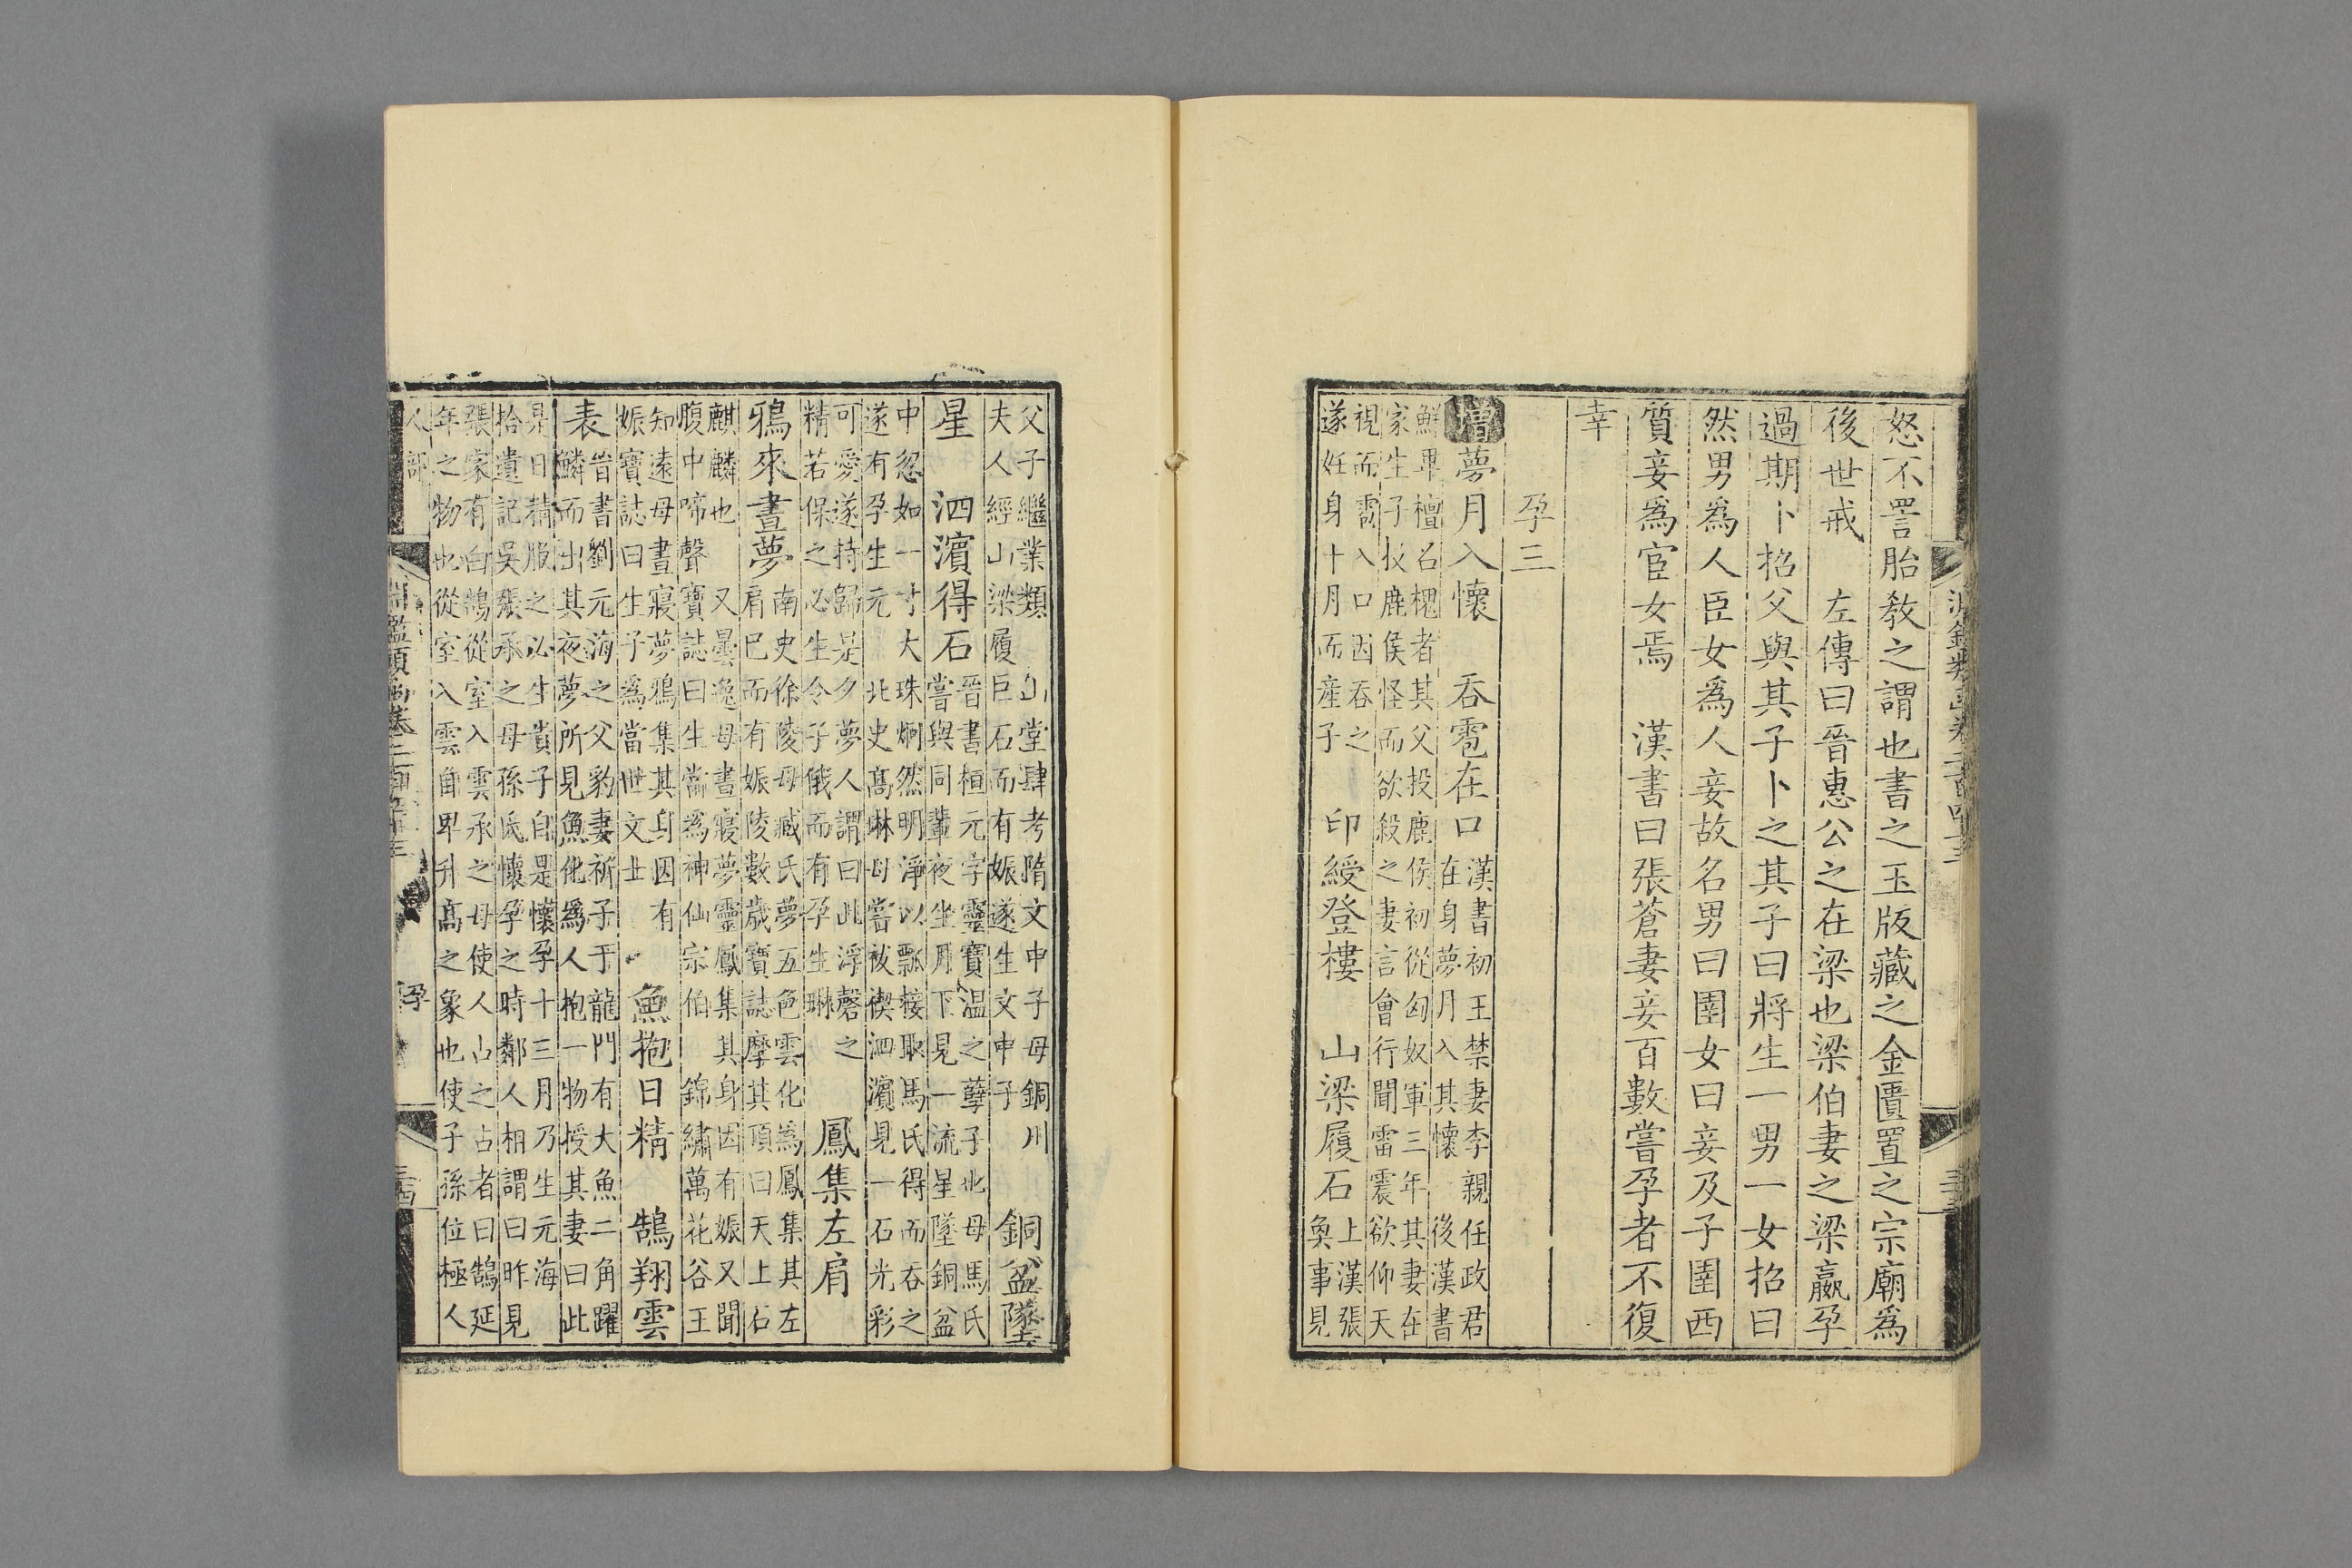 怒不詈胎敎之謂也書之玉版藏之金匱置之宗廟爲
後世戒　左傳曰晉惠公之在梁也梁伯妻之梁嬴孕
過期卜招父與其子卜之其子曰將生一男一女招曰
然男爲人臣女爲人妾故名男曰圉女曰妾及子圉西
質妾爲宦女焉　漢書曰張蒼妻妾百數嘗孕者不復
幸
孕三
增夢月入懷　吞雹在口
漢書初王禁妻李親任政君
在身夢月入其懷　後漢書
鮮畢檀石槐者其父投鹿侯初從匈奴軍三年其妻在
家生子投鹿侯怪而欲殺之妻言會行聞雷震欲仰天
視而雹入口因吞之
遂妊身十月而産子
印綬登樓　山梁履石
上漢張
奐事見
父子繼業類　山堂肆考隋文中子母銅川
夫人經山梁履巨石而有娠遂生文中子
銅盆墜
星　泗濱得石
晉書桓元字靈寶温之孽子也母馬氏
嘗與同輩夜坐月下見一流星墜銅盆
中忽如一寸大珠炯然明淨以瓢接取馬氏得而吞之
遂有孕生元　北史高琳母嘗祓禊泗濱見一石光彩
可愛遂持歸是夕夢人謂曰此浮磬之
精若保之必生令子俄而有孕生琳
鳳集左肩
鴉來晝夢
南史徐陵母臧氏夢五色雲化為鳳集其左
肩已而有娠陵數歲寶誌摩其頂曰天上石
麒麟也　又曇逸母晝寢夢靈鳳集其身因有娠又聞
腹中啼聲寶誌曰生當爲神仙宗伯　錦繡萬花谷王
知遠母晝寢夢鴉集其身因有
娠寶誌曰生子爲當世文士
魚抱日精　鵠翔雲
表
晉書劉元海之父豹妻祈子于龍門有大魚二角躍
鱗而出其夜夢所見魚化爲人抱一物授其妻曰此
是日精服之必生貴子自是懷孕十三月乃生元海
拾遺記吳張承之母孫氏懷孕之時鄰人相謂曰昨見
張家有白鵠從室入雲承之母使人占之占者曰鵠延
年之物也從室入雲自卑升高之象也使子孫位極人
人部
淵鑑類函卷二百四十三
孕
三十四